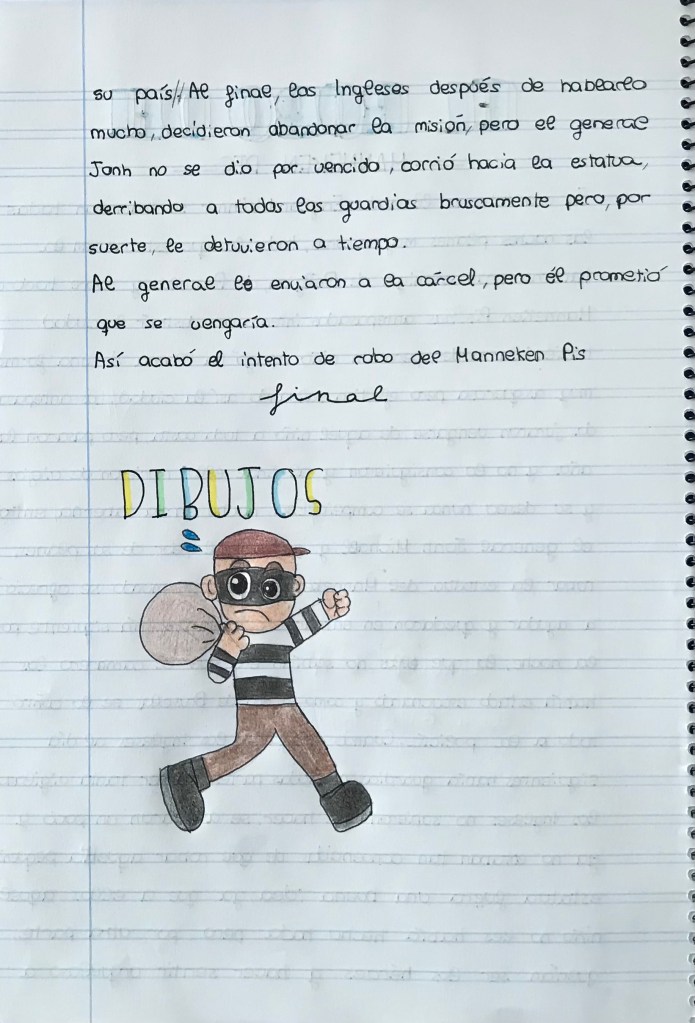 su país// Al final, los Ingleses después de hablarlo
mucho, decidieron abandonar la misión, pero el general
Jonh no se dio por vencido, corrió hacia la estatua,
derribando a todos los guardias bruscamente pero, por
suerte, le detuvieron a tiempo.
Al general le enviaron a la cárcel, pero él prometió
que se vengaría.
Así acabó el intento de robo del Manneken Pis
final
DIBUJOS